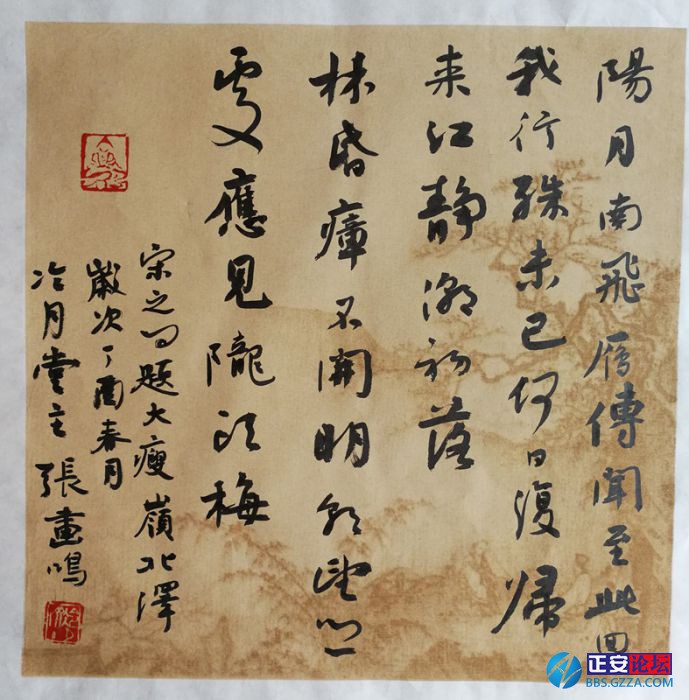 陽月南飛雁傳聞至此回
我行殊未已何日復歸
来江静潮初落
林昏瘴不開明朝望鄉
處應見隴头梅
宋之问題大瘦嶺北澤
歲次丁酉春月
冷月堂主張畫鳴
正安论坛
BBS.GZZA.COM